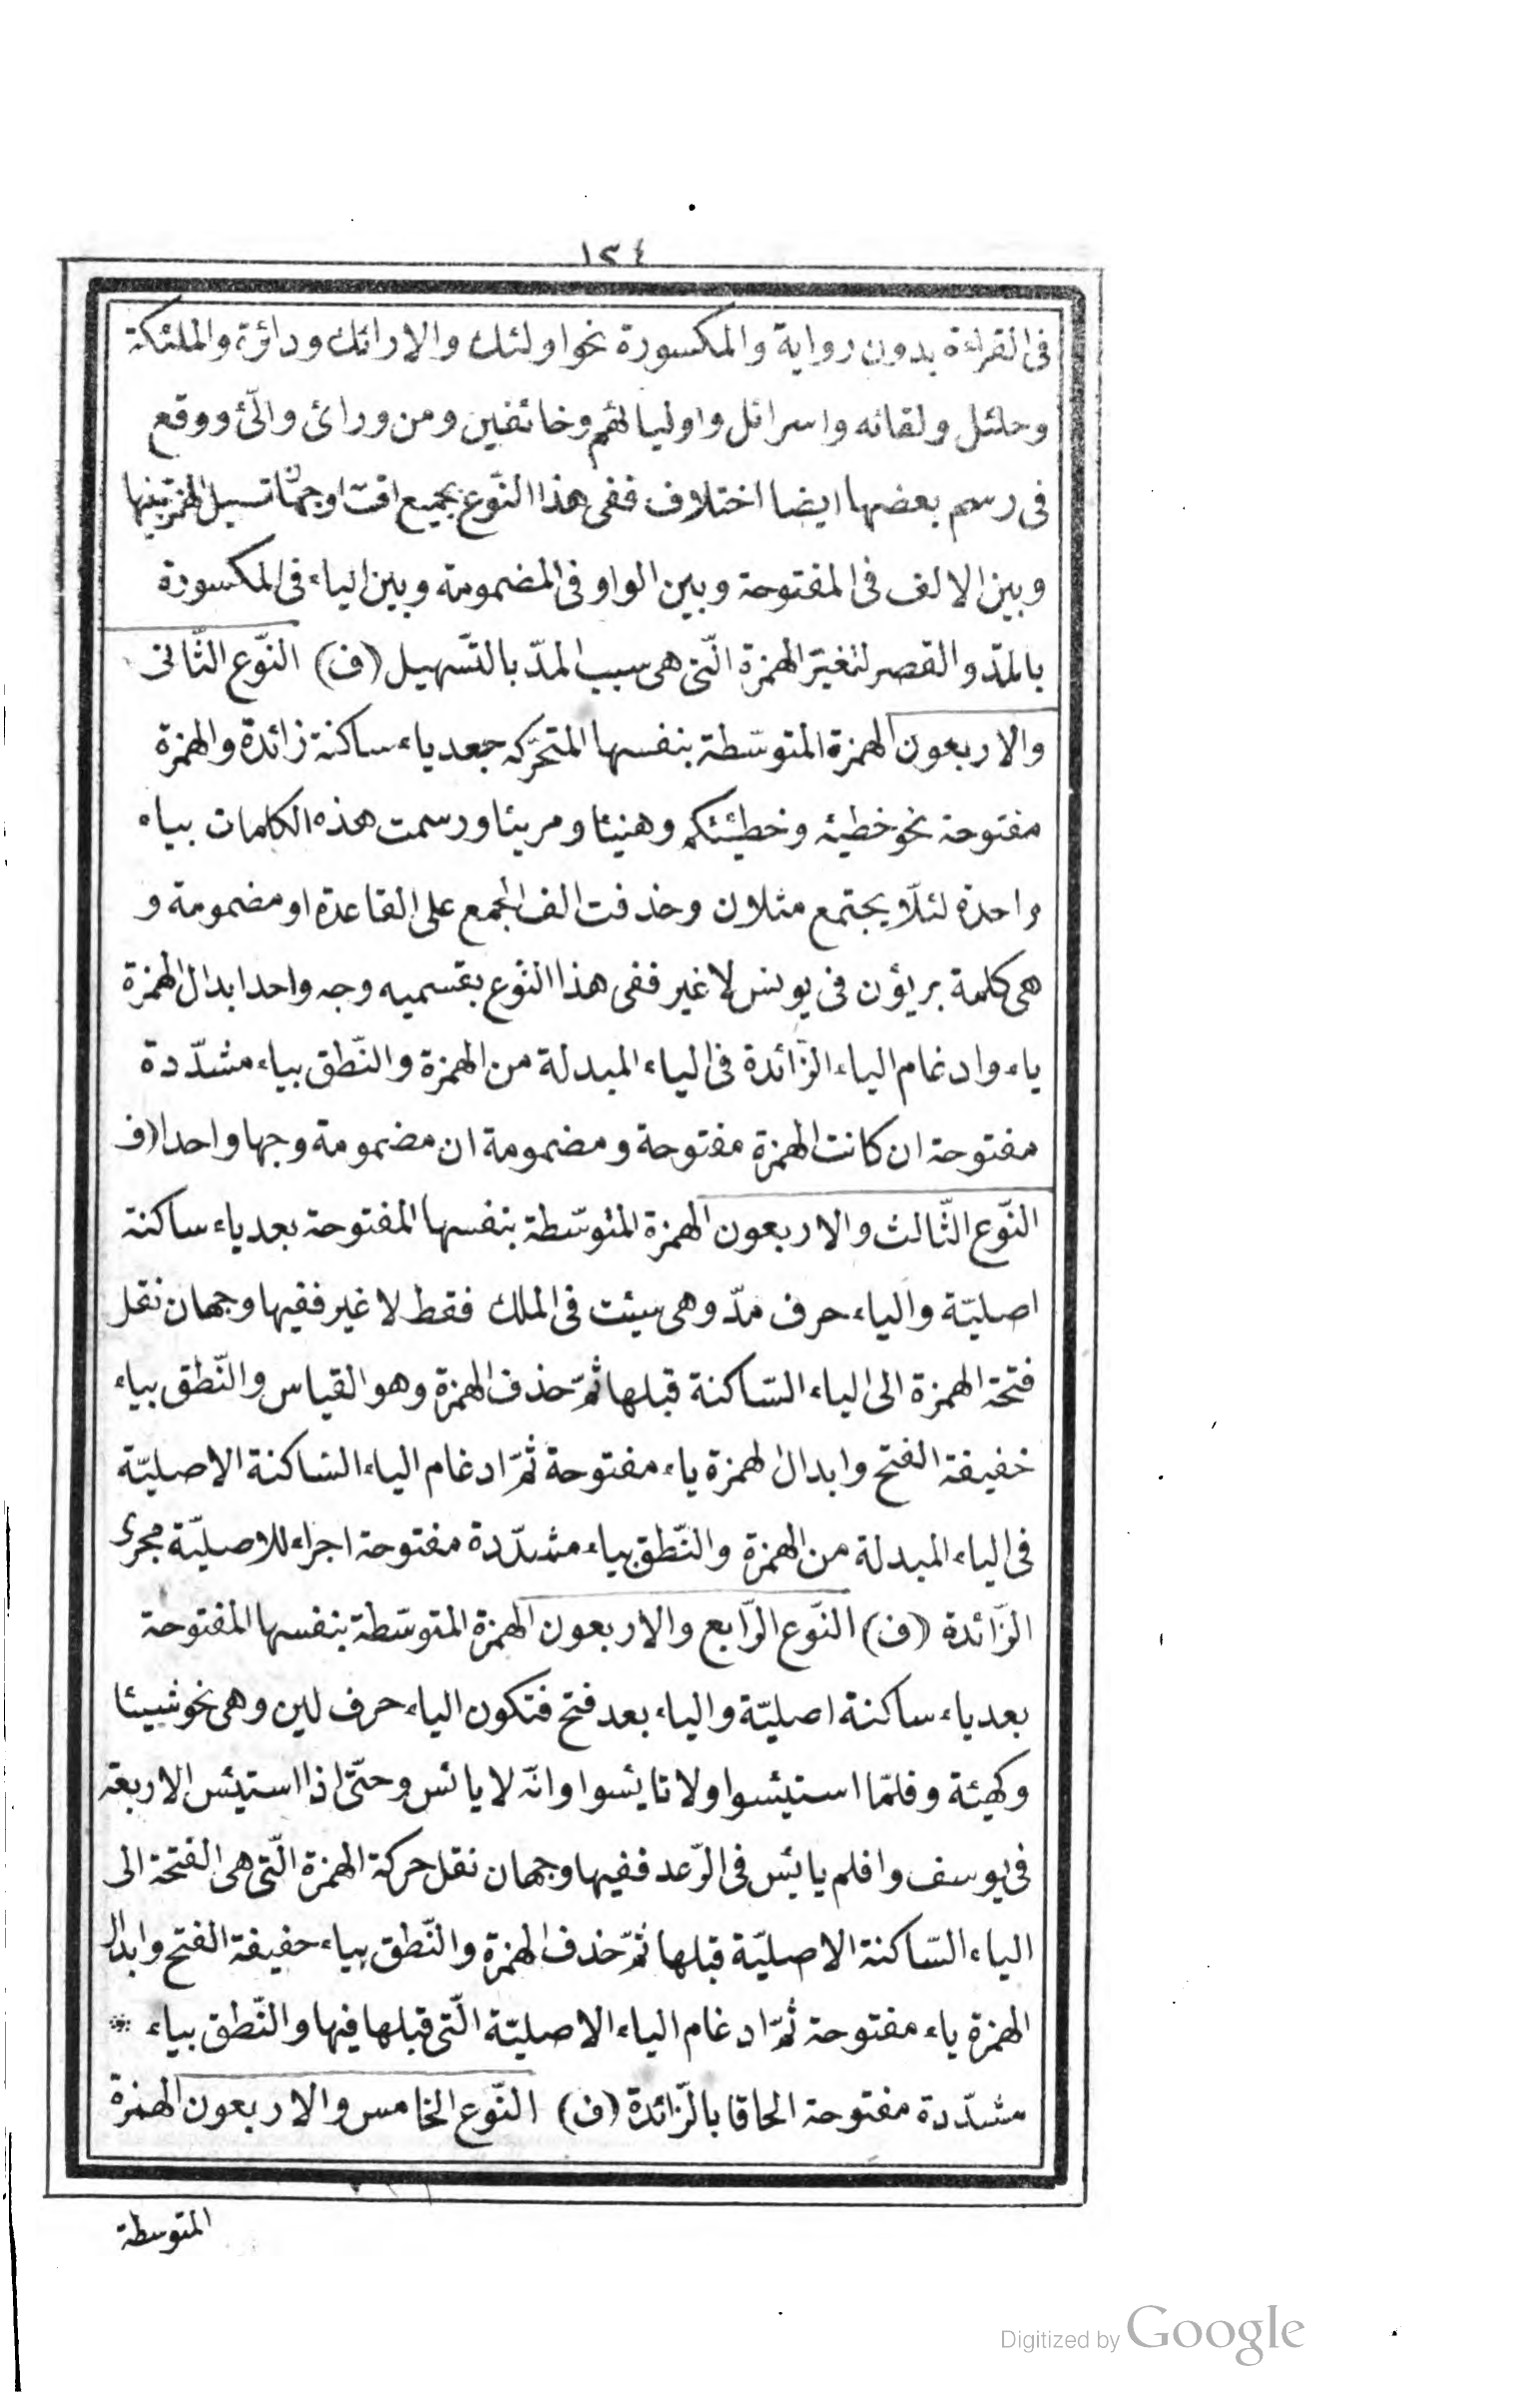 ١٣٤
فى القراءة بدون رواية والمكسورة نحو اولئك والارائك ودائرة والملئكة
وحلئل ولقائه واسرائل واوليائهم وخائفين ومن ورائ والّئ ووقع
فى رسم بعضها ايضا اختلاف ففى هذا النّوع بجميع تسهيل الهمزة بينها
وبين الالف فى المفتوحة وبين الواو فى المضمومة وبين الياء فى المكسورة
بالمدّ والقصر لتغيّر الهمزة الّتى هى سبب المدّ بالتّسهيل (ف) النّوع الثّانى
والاربعون الهمزة المتوسّطة بنفسها المتحرّكه بعد ياء ساكنة زائدة والهمزة
مفتوحة نحو خطيئه وخطيئتكم وهنيئا ومريئا ورسمت هذه الكلمات بياء
واحدة لئلّا يجتمع مثلان وحذفت الف الجمع على القاعدة او مضمومة و
هى كلمة بريؤن فى يونس لا غير ففى هذا النّوع بقسميه وجه واحد ابدال الهمزة
ياء وادغام الياء الزّائدة فى الياء المبدلة من الهمزة والنّطق بياء مشدّدة
مفتوحة ان كانت الهمزة مفتوحة ومضمومة ان مضمومة وجها واحدا (ف
النّوع الثّالث والاربعون الهمزة المتوسّطة بنفسها المفتوحة بعد ياء ساكنة
اصليّة والياء حرف مدّ وهى سيئت فى الملك فقط لا غير ففيها وجهان نقل
فتحة الهمزة الى الياء السّاكنة قبلها ثمّ حذف الهمزة وهو القياس والنّطق بياء
خفيفة الفتح وابدال الهمزة ياء مفتوحة ثمّ ادغام الياء السّاكنة الاصليّة
فى الياء المبدلة من الهمزة والنّطق بياء مشدّدة مفتوحة اجراء للاصليّة مجرى
الزّائدة (ف) النّوع الرّابع والاربعون الهمزة المتوسّطة بنفسها المفتوحة
بعد ياء ساكنة اصليّة والياء بعد فتح فتكون الياء حرف لين وهى نحو شيئا
وكهيئة وفلمّا استيئسوا ولا تايئسوا وانّه لا يائس وحتّى اذا استيئس الاربعة
فى يوسف وافلم يايئس فى الرّعد ففيها وجهان نقل حركة الهمزة الّتى هى الفتحة الى
الياء السّاكنة الاصليّة قبلها ثمّ حذف الهمزة والنّطق بياء خفيفة الفتح وابدال
الهمزة ياء مفتوحة ثمّ ادغام الياء الاصليّة الّتى قبلها فيها والنّطق بياء
مشدّدة مفتوحة الحاقا بالزّائدة (ف) النّوع الخامس والاربعون الهمزة
المتوسطة
Digitized by Google